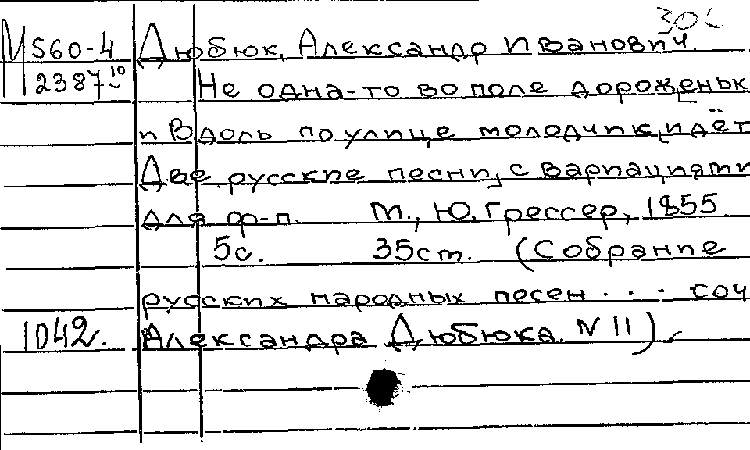 30
М 560-4 Дюбюк, Александр Иванович.
2387-10 Не одна-то во поле дороженьк
и Вдоль по улице молодчик идёт
Две русские песни, с вариациями
для ф-п. М., Ю. Грессер, 1855
5с. 35см. (Собрание
русских народных песен . . . соч
1042. Александра Дюбюка. N 11).